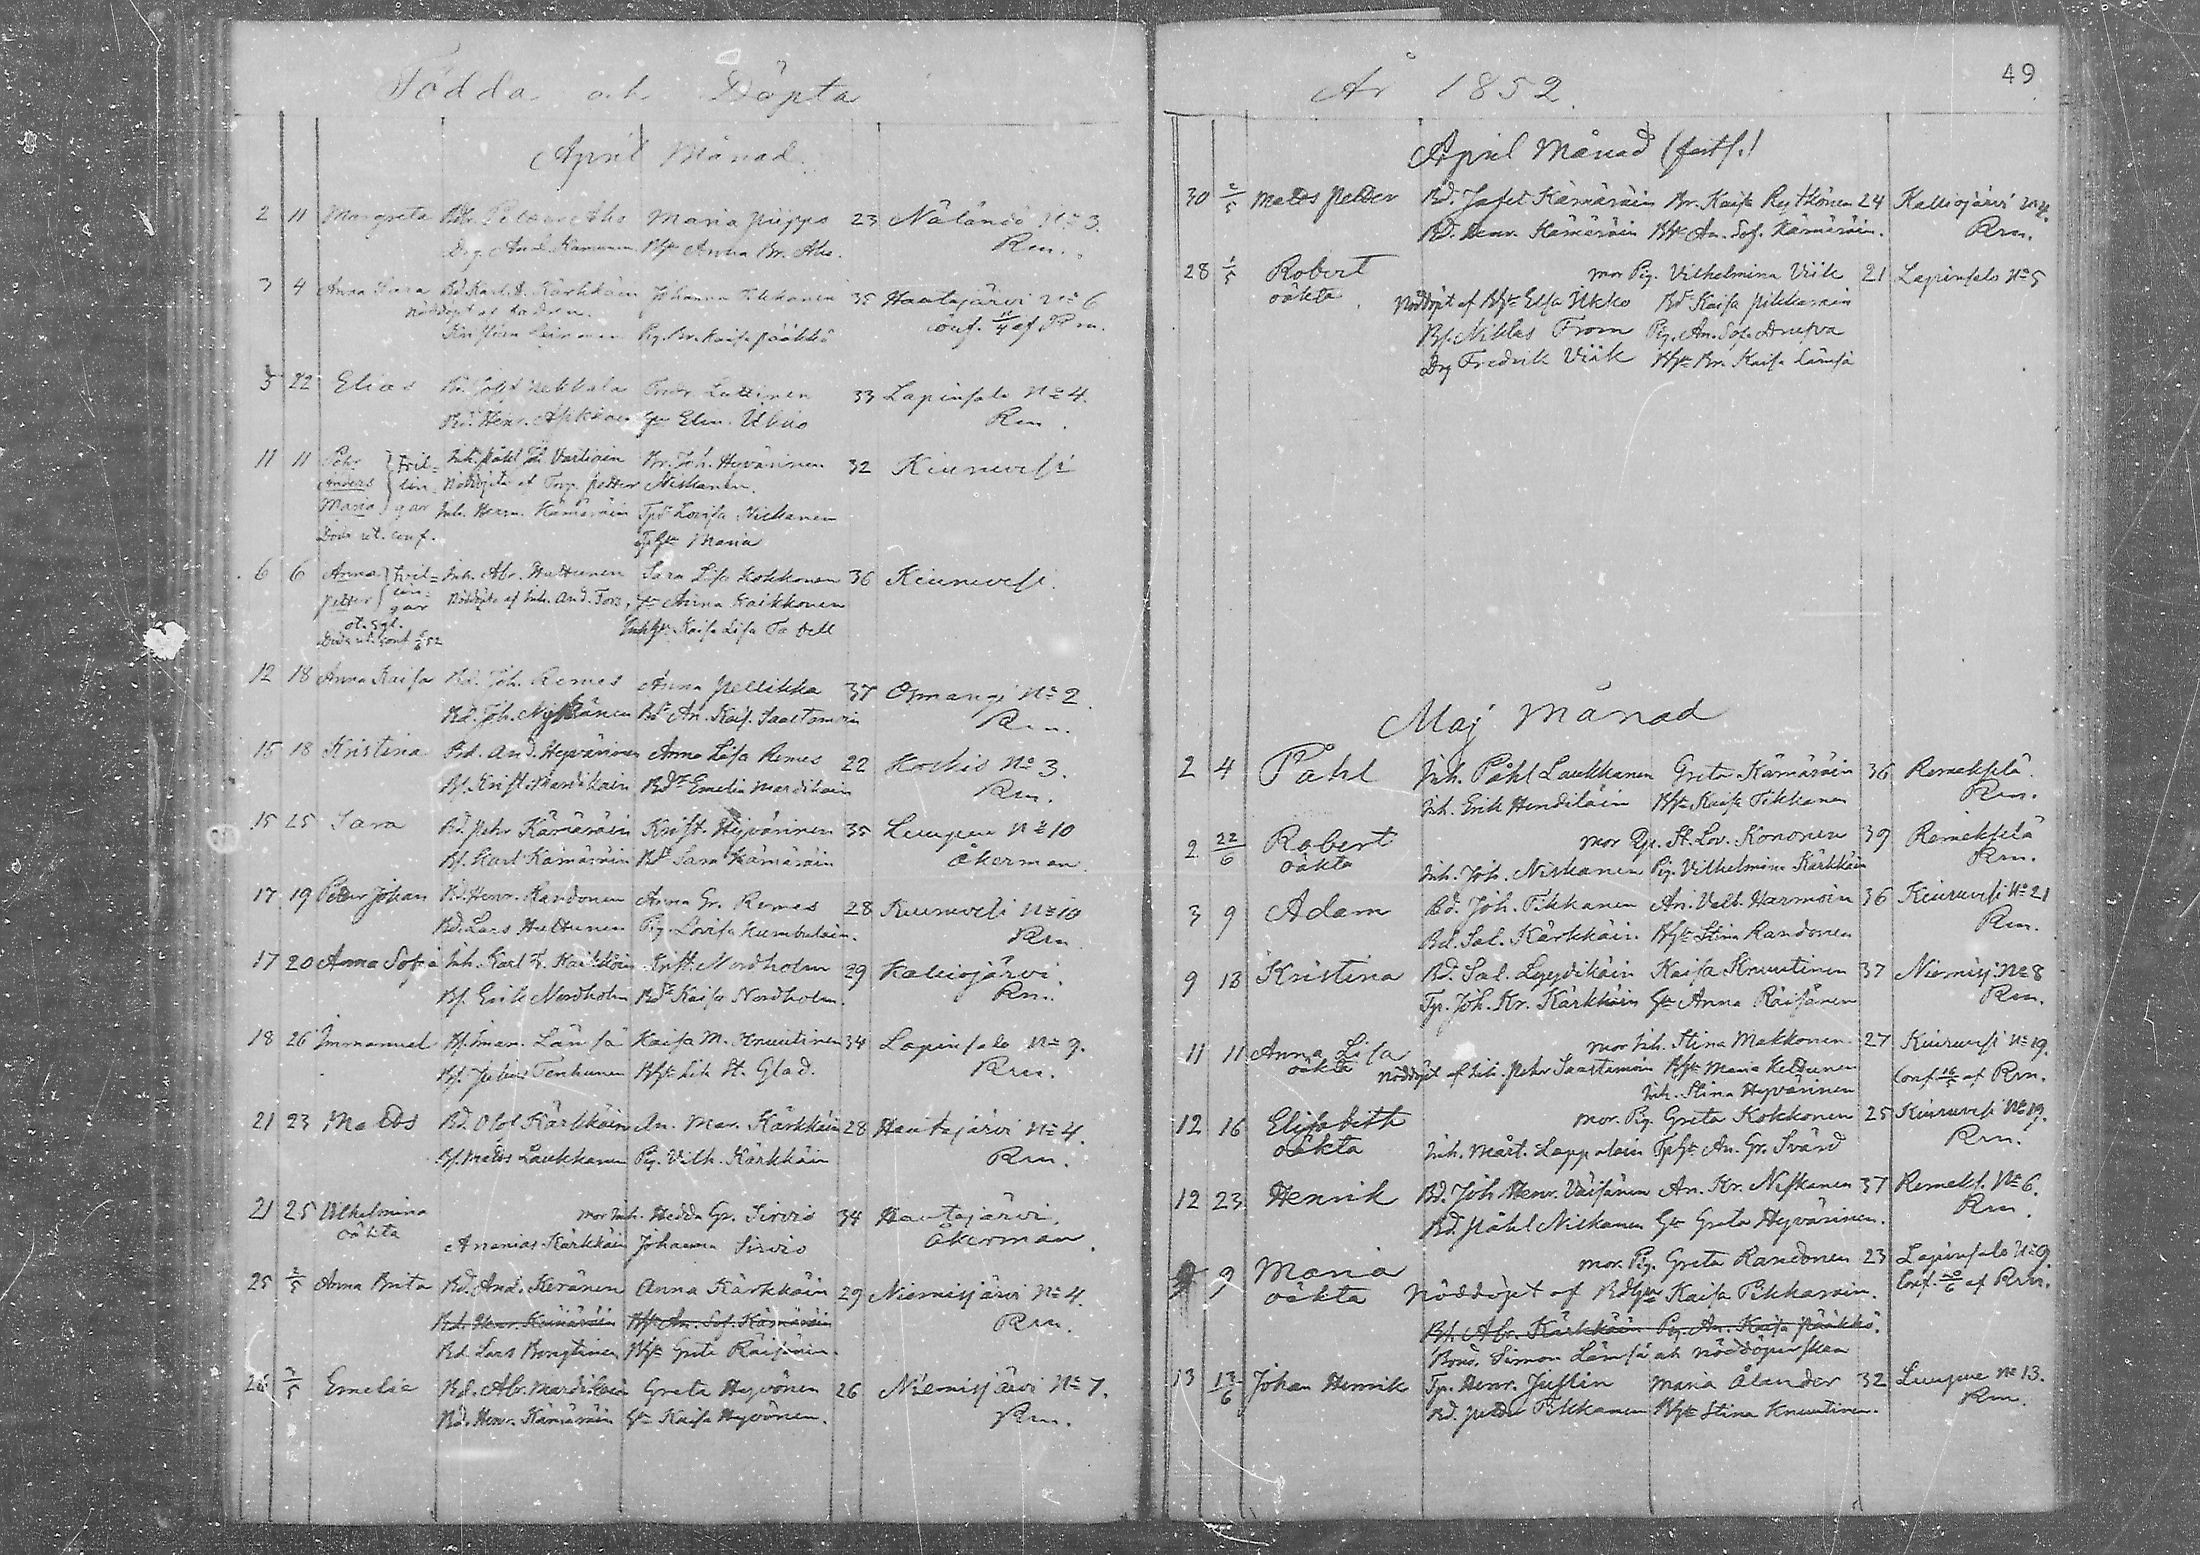 Födda och Döpta
April Månad
2 11 Margreta Maria Piippo 23 Näländö No 3.
Drg. And. Kananen Hfr Anna Br. Aho. Rm.
3 4 Anna Sara Bd. Karl A. Kärkkäin Johanna Tikkanen 35 Hautajärvi No 6
Nöddöpt af fadren. conf. 12/4 af Rm.
Pig. Br. Kaisa Pääkkö
5 22 Elias Luttinen 33 Lapinsalo No 4.
Rm.
11 11 Pehr Inh. Påhl Joh. Vartiain Br. Joh. Hyvärinen 32 Kiuruvesi
Anders } tvil= Nöddöpta af Torp. Petter Niskanen.
Maria } lingar Inh. Herm. Kämäräin Tpd Lovisa Niskanen
Döda ut. conf. Maria
6 6 Anna } tvil= Inh. Abr. Huttunen Sara Lisa Kokkonen 36 Kiuruvesi.
Petter } lingar Nöddöpta af Inh. And. Fors, Anna Kaikkonen
Kaisa Lisa
12 18 Anna Kaisa Bd. Joh. Remes Anna Pellikka 37 Osmangi No 2
Bd. Joh. Nykänen Bd An. Kais. Saastamoin Rm.
15 18 Kristina Bd. And. Hyvärinen Anna Lisa Remes 22 Koskis No 3.
Bs. Krist. Mardikain Bdr Emelia Mardikain Rm.
15 25 Sara Bd. Pehr Kämäräin Krist. Hyvärinen 35 Luupue No 10
Bs. Karl Kämäräin Bd Sara Kämäräin Åkerman
17 19 Petter Johan Bd. Henr. Kandonen Anna Gr. Remes 28 Kiuruvesi No 10
Bd. Lars Huttunen Pig. Lovisa Kumbulain. Rm.
17 20 Anna Sofia Inh. Karl F. Kaikkoin Krist. Nordholm 29 Kalliojärvi.
Bs. Erik Nordholm Bdr Kaisa Nordholm. Rm.
18 26 Immanuel Bs. Iman. Länsä Kaisa M. Knuutinen 34 Lapinsalo No 9.
Bs. Julius Tenhunen Rm.
21 23 Matts Bd. Olof Kärkkäin An. Mar. Kärkkäin 28 Hautajärvi No 4.
Bs. Matts Laukkanen Pig. Vilh. Kärkkäin Rm.
21 25 Vilhelmina mor Inh. Hedda Gr. Sirviö 34 Hautajärvi,
oäkta Ananias Kärkkäin Johanna Sirviö Åkerman.
25 2/5 Anna Brita Bd. And. Keränen Anna Kärkkäin 29 Niemisjärvi No 4.
Bd. Henr. Kämäräin Hfr An. Sof. Kämäräin Rm.
Bd. Lars Hfr Greta Räisänen.
26 2/5 Emelia Bd. Abr. Mardikain Greta Hyvönen 26 Niemisjärvi No 7.
Bd. Henr. Kämäräin Gr Kaisa Hyvönen. Rm.
År 1852.
49
April Månad (forts.)
30 2/5 Matts Petter Bd. Jafet Kämäräin Br. Kaisa Rytkönen 24 Kalliojärvi No 4.
Bd. Henr. Kämäräin Hfr An. Sof. Kämäräin. Rm.
28 1/5 Robert mor Pig. Vilhelmina Viik 21 Lapinsalo No 5
oäkta Nöddöpt af Bgr Elsa Ukko Bd Kaisa Pikkarain
Bs. Niklas From Pig. An. Sof.
Drg Fredrik Viik Hfr Br. Kaisa Länsä
Maj Månad
2 4 Påhl Inh. Påhl Laukkanen Greta Kämäräin 36 Remekselä.
Inh. Erik Hendilain Bgr Kaisa Tikkanen Rm.
2 22/6 Robert mor Pig. St. Lov. Kononen 39 Remekselä
oäkta Inh. Joh. Niskanen Pig. Vilhelmina Kärkkäin Rm.
3 9 Adam Bd. Joh. Tikkanen An. Valb. Harmoin 36 Kiuruvesi No 21
Bd. Sal. Kärkkäin Bgr Stina Kandonen Rm.
9 13 Kristina Bd. Sal. Lyydikäin Kaisa Knuutinen 37 Niemisj. No 8
Tp. Joh. Kr. Kärkkäin Gr Anna Räisänen Rm.
11 11 Anna Lisa mor Inh. Stina Makkonen 27 Kiuruvesi No 19.
oäkta Nöddöpt af Inh. Pehr Saastamoin Bgr Maria Keldunen Conf. 16/5 af Rm.
Inh. Stina Hyvärinen
12 16 Elisabeth mor. Pig. Greta Kokkonen 25 Kiuruvesi No 19.
oäkta Inh. Mårt. Lappalain Tpgr An. Gr. Svärd Rm.
12 23 Henrik Bd. Joh. Henr. Väisänen An. Kr. Niskanen 37 Remeks. No 6.
Bd. Påhl Niskanen Gr Greta Hyvärinen. Rm.
9 Maria mor. Pig. Greta Kandonen 23 Lapinsalo No 9.
oäkta Nöddöpt af Kaisa Pikkarain. Conf. 20/6 af Rm.
Bd. Abr. Kärkkäin Pig. An. Kaisa Pääkkö.
Bond. Simon Länsä och nöddöperskan
13 13/6 Johan Henrik Tp. Henr. Justin Maria Ålander 32 Luupue No 13.
Bd. Petter Tikkanen Bgr Stina Knuutinen. Rm.